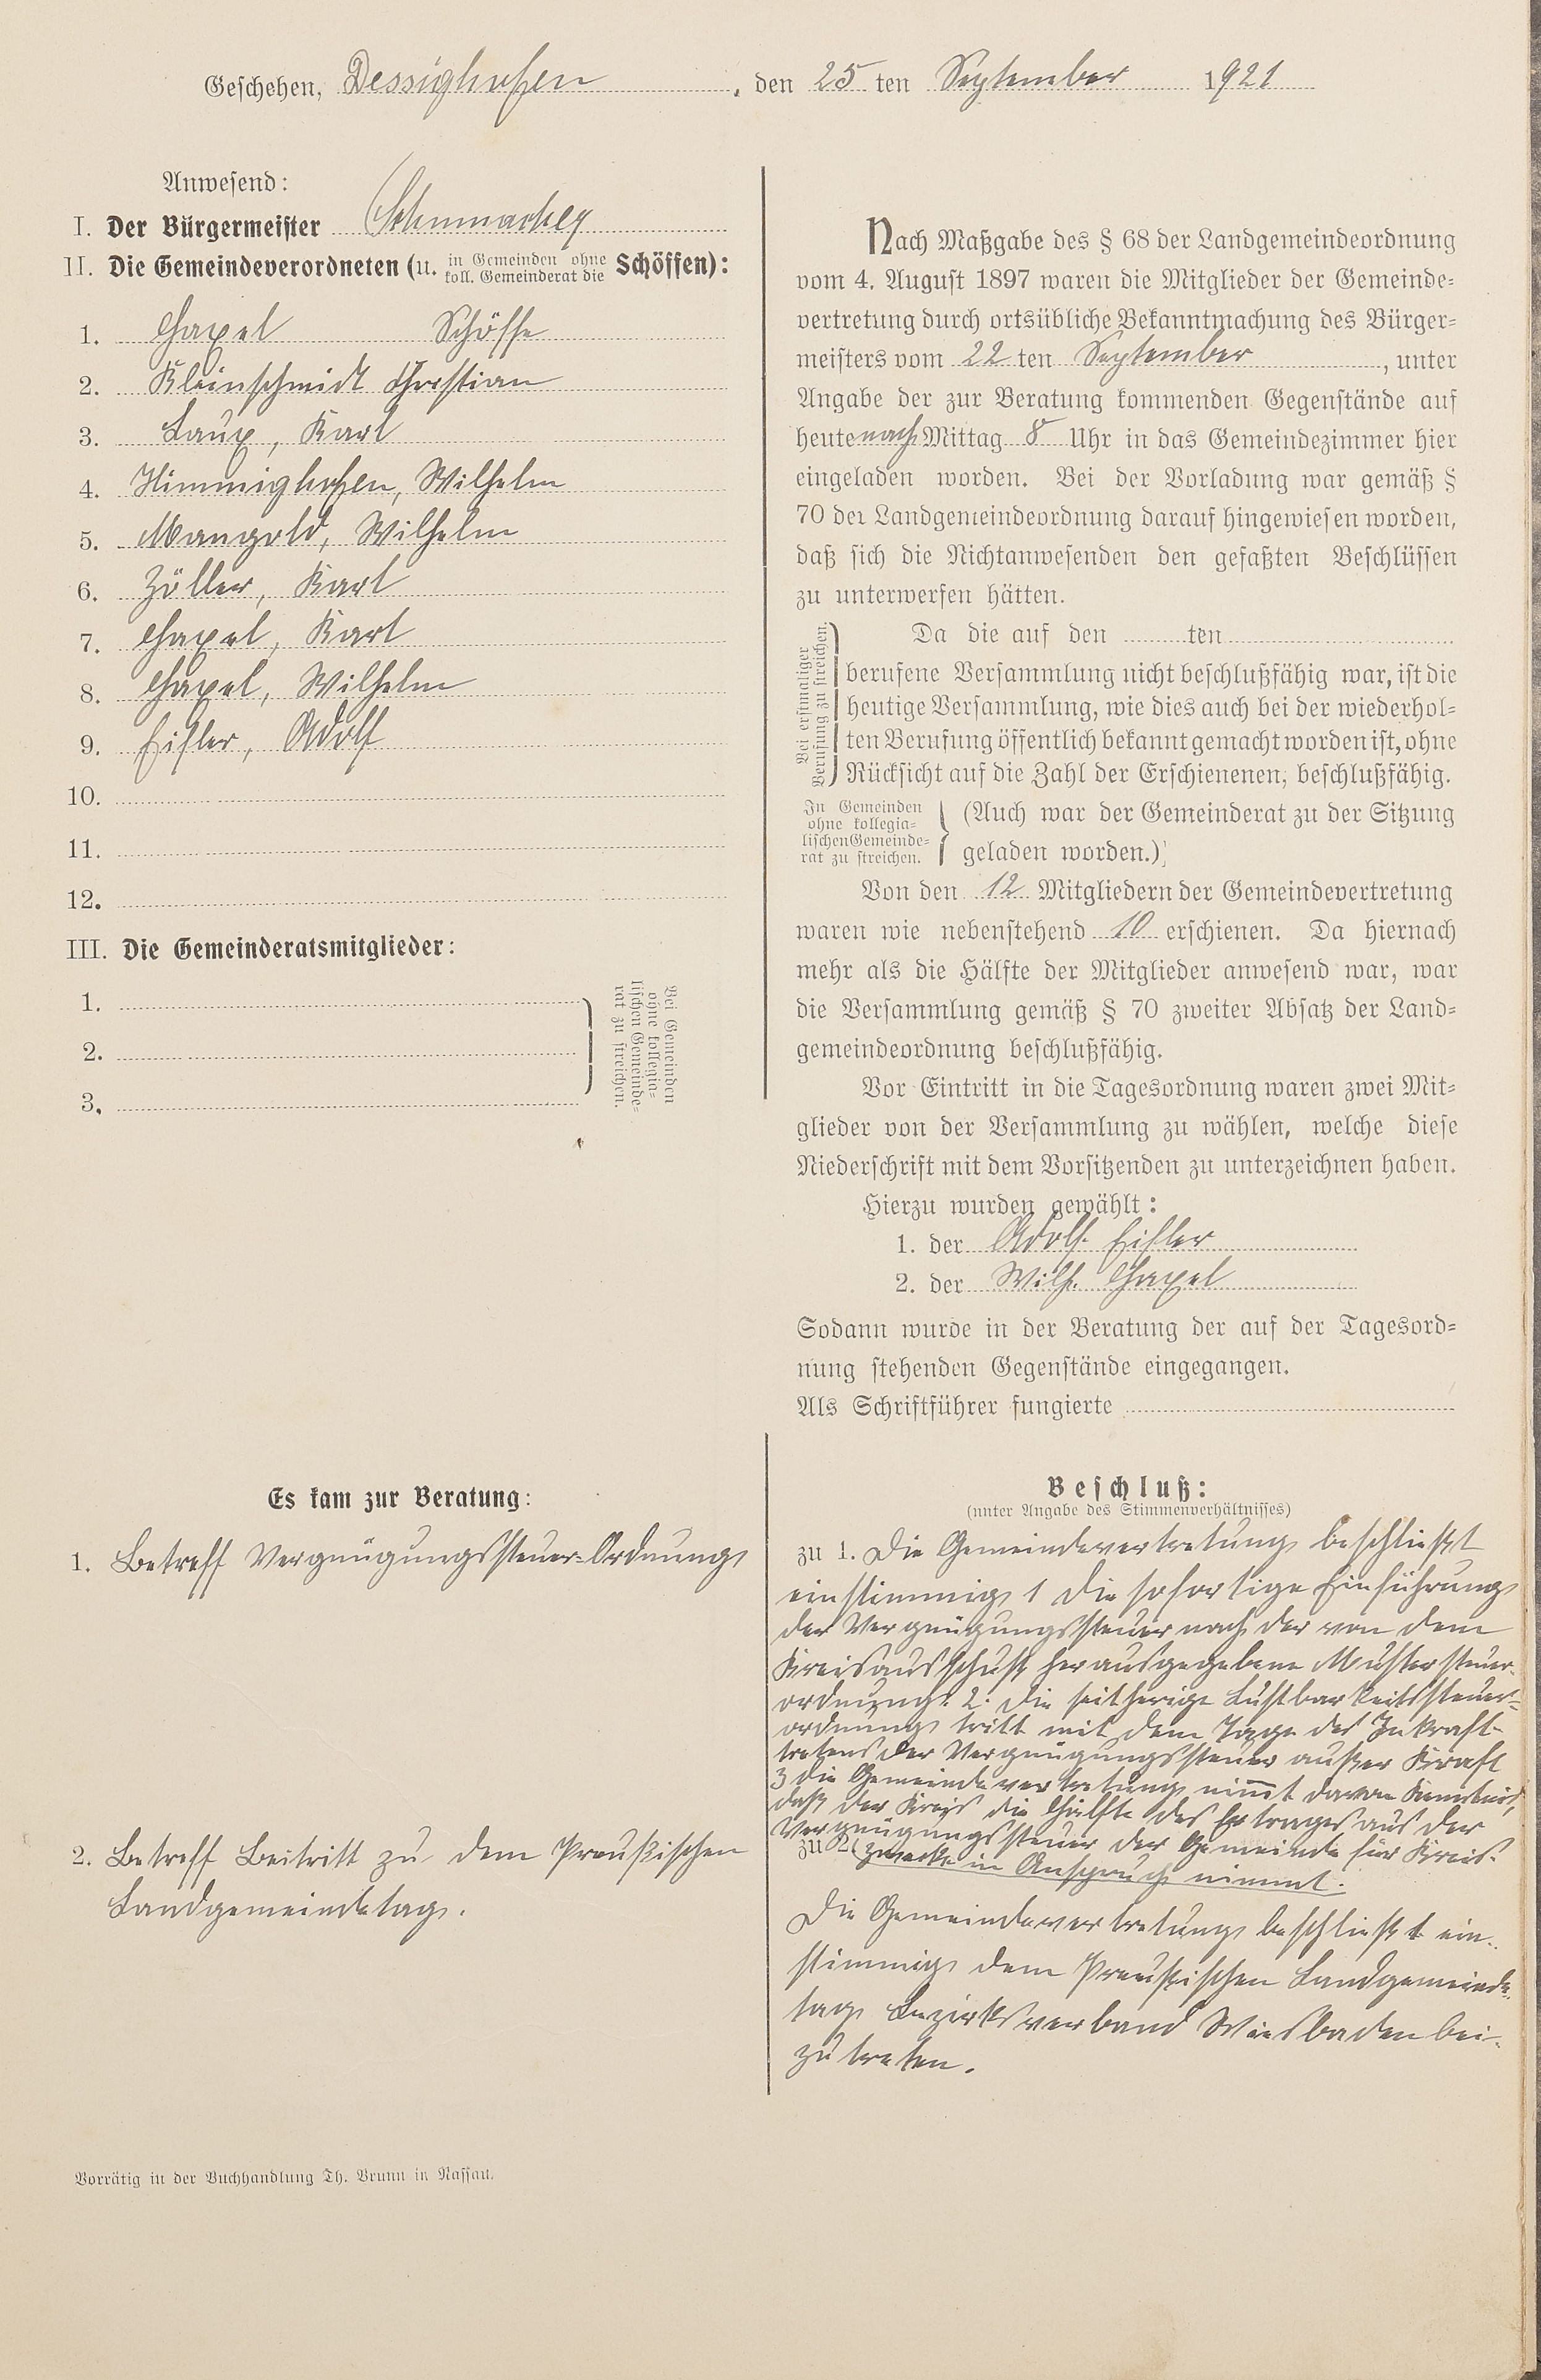 Geschehen, Dessighofen, den 25 ten September 1921
Anwesend:
I. Der Bürgermeister Schumacher
II. Die Gemeindeverordneten (u. in Gemeinden ohne koll. Gemeinderat die Schöffen):
1. Hapel Schöffe
2. Kleinschmidt Christian
3. Laux, Karl
4. Himmighofen, Wilhelm
5. Mangold, Wilhelm
6. Zöller, Karl
7. Hapel, Karl
8. Hapel, Wilhelm
9. Eisler, Adolf
10.
11.
12.
III. Die Gemeinderatsmitglieder:
1.
2.
3.
Bei Gemeinden
ohne kollegia-
lischen Gemeinde-
rat zu streichen.
Nach Maßgabe des § 68 der Landgemeindeordnung
vom 4. August 1897 waren die Mitglieder der Gemeinde-
vertretung durch ortsübliche Bekanntmachung des Bürger-
meisters vom 22 ten September, unter
Angabe der zur Beratung kommenden Gegenstände auf
heute nach Mittag 8 Uhr in das Gemeindezimmer hier
eingeladen worden. Bei der Vorladung war gemäß §
70 der Landgemeindeordnung darauf hingewiesen worden,
daß sich die Nichtanwesenden den gefaßten Beschlüssen
zu unterwerfen hätten.
Bei erstmaliger
Berufung zu streichen.
Da die auf den ten
berufene Versammlung nicht beschlußfähig war, ist die
heutige Versammlung, wie dies auch bei der wiederhol-
ten Berufung öffentlich bekannt gemacht worden ist, ohne
Rücksicht auf die Zahl der Erschienenen, beschlußfähig.
In Gemeinden
ohne kollegia-
lischen Gemeinde-
rat zu streichen.
(Auch war der Gemeinderat zu der Sitzung
geladen worden.)
Von den 12 Mitgliedern der Gemeindevertretung
waren wie nebenstehend 10 erschienen. Da hiernach
mehr als die Hälfte der Mitglieder anwesend war, war
die Versammlung gemäß § 70 zweiter Absatz der Land-
gemeindeordnung beschlußfähig.
Vor Eintritt in die Tagesordnung waren zwei Mit-
glieder von der Versammlung zu wählen, welche diese
Niederschrift mit dem Vorsitzenden zu unterzeichnen haben.
Hierzu wurden gewählt:
1. der Adolf Eisler
2. der Wilh. Hapel
Sodann wurde in der Beratung der auf der Tagesord-
nung stehenden Gegenstände eingegangen.
Als Schriftführer fungierte
Es kam zur Beratung:
1. Betreff Vergnügungssteuer-Ordnung
2. Betreff Beitritt zu dem Preußischen
Landgemeindetag.
Beschluß:
(unter Angabe des Stimmenverhältnisses)
zu 1. Die Gemeindevertretung beschließt
einstimmig 1 die sofortige Einführung
der Vergnügungssteuer nach der von dem
Kreisausschuß herausgegebene Mustersteuer-
ordnung. 2. Die seitherige Lustbarkeitssteuer-
ordnung tritt mit dem Tage des Inkraft-
tretens der Vergnügungssteuer außer Kraft
3 die Gemeindevertretung nimmt davon Kenntnis,
daß der Kreis die Hälfte des Ertrages aus der
Vergnügungssteuer der Gemeinde für Kreis-
zwecke in Anspruch nimmt.
zu 2.
Die Gemeindevertretung beschließt ein-
stimmig dem Preußischen Landgemeinde-
tag Bezirksverband Wiesbaden bei-
zutreten.
Vorrätig in der Buchhandlung Th. Brunn in Nassau.